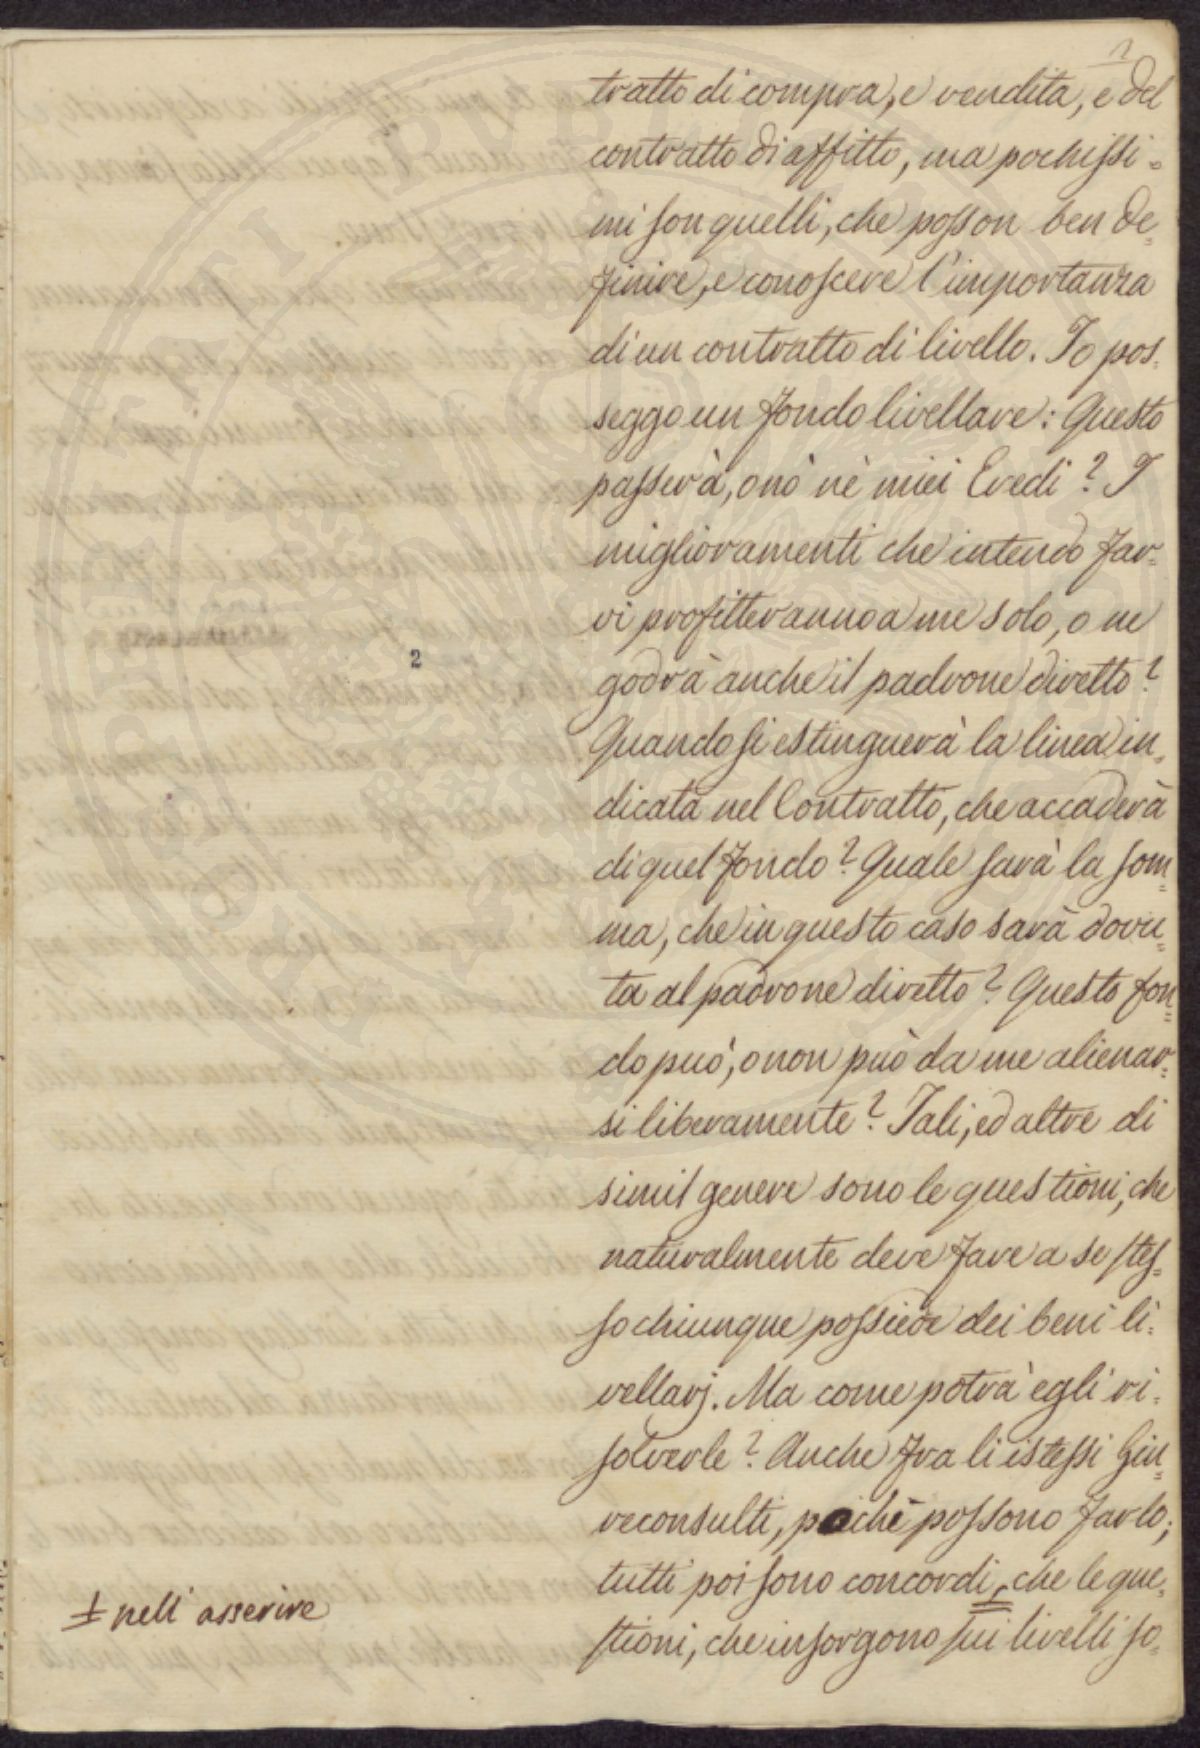 2
tratto di compra, e vendita, e del
contratto di affitto, ma pochissi=
mi son quelli, che posson ben de=
finire, e conoscere l'importanza
di un contratto di livello. Io pos=
seggo un fondo livellare: Questo
passerà, o nò nè miei Eredi? I
miglioramenti che intendo far=
vi profitteranno a me solo, o ne
godrà anche il padrone diretto?
2
Quando si estinguerà la linea in=
dicata nel Contratto, che accaderà
di quel fondo? Quale sarà la som=
ma, che in questo caso sarà dovu=
ta al padrone diretto? Questo fon=
do può, o non può da me alienar=
si liberamente? Tali, ed altre di
simil genere sono le questioni, che
naturalmente deve fare a se stes=
so chiunque possiede dei beni li=
vellarj. Ma come potrà egli ri=
solverle? Anche fra li istessi Giu=
reconsulti, pochi possono farlo;
tutti poi sono concordi, che le que=
stioni, che insorgono sui livelli so=
± nell' asserire